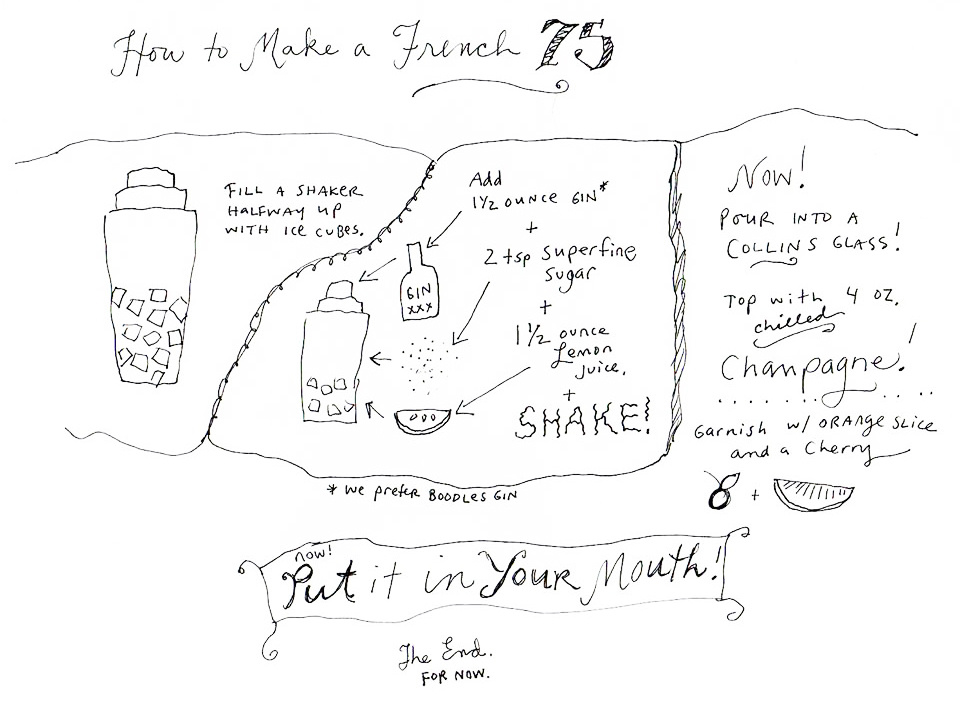 How to Make a French 75
FILL A SHAKER
HALFWAY UP
WITH ICE CUBES.
Add
1 1/2 OUNCE GIN*
+
2 tsp superfine
sugar
+
1 1/2 ounce
Lemon
juice.
+
SHAKE!
GIN
XXX
* WE PREFER BOODLES GIN
NOW!
POUR INTO A
COLLINS GLASS!
TOP WITH 4 OZ.
chilled
Champagne!
Garnish W/ ORANGE SLICE
and a Cherry
+
now!
Put it in Your Mouth!
The End.
FOR NOW.